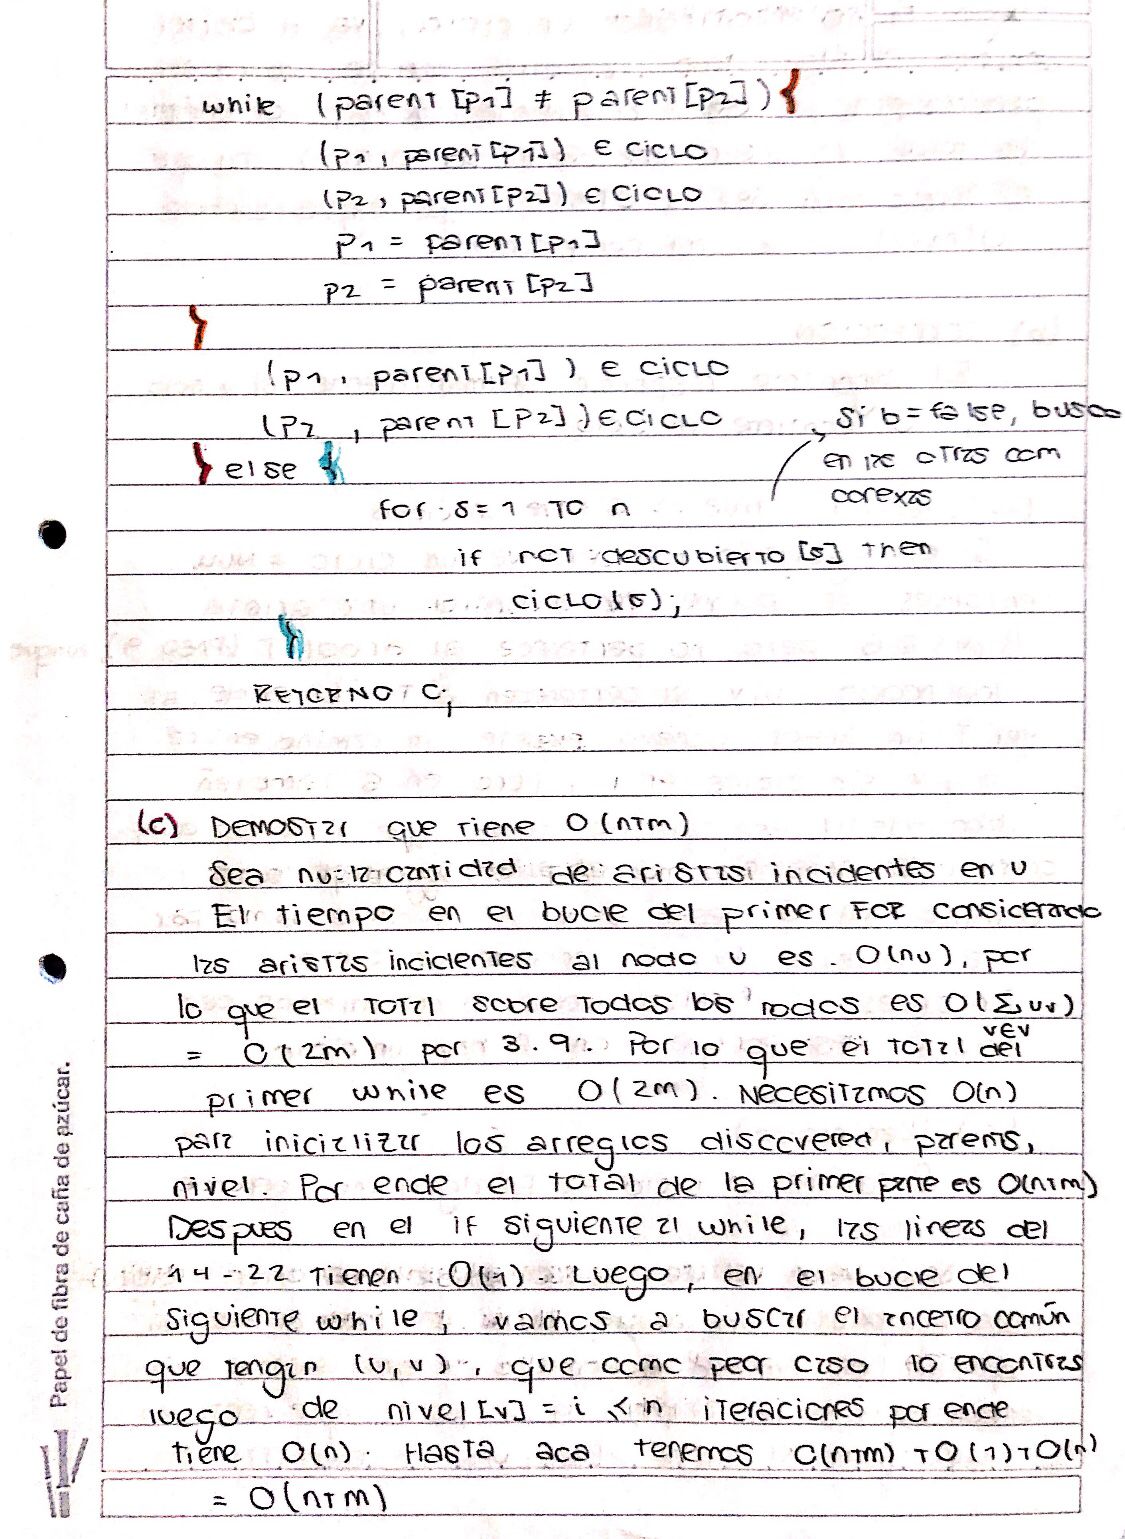 while (parent [p1] ≠ parent[p2]) {
(p1, parent[p1]) ∈ CICLO
(p2, parent[p2]) ∈ CICLO
p1 = parent[p1]
p2 = parent[p2]
}
(p1, parent[p1]) ∈ CICLO
(p2, parent [p2]) ∈ CICLO
, Si b = false, busco
} else {
entre otras com
corexas
for s = 1 to n
if not descubierto [s] then
CICLO(s);
}
RETORNO C;
(c) Demostrar que tiene O(n+m)
Sea nu = la cantidad de aristas incidentes en u
El tiempo en el bucle del primer FOR considerando
las aristas incidentes al nodo u es O(nu), por
lo que el total sobre todos los nodos es O(Σ uv)
v∈V
= O(2m) por 3.9. Por lo que el total del
primer while es O(2m). Necesitamos O(n)
para inicializar los arreglos discovered, parents,
nivel. Por ende el total de la primer parte es O(n+m)
Despues en el if siguiente al while, las lineas del
14-22 tienen O(1). Luego, en el bucle del
siguiente while, vamos a buscar el ancetro común
que tengan (u,v), que como peor caso lo encontras
luego de nivel[v] = i < n iteraciones por ende
tiene O(n). Hasta aca tenemos O(n+m) + O(1) + O(n)
= O(n+m)
Papel de fibra de caña de azúcar.